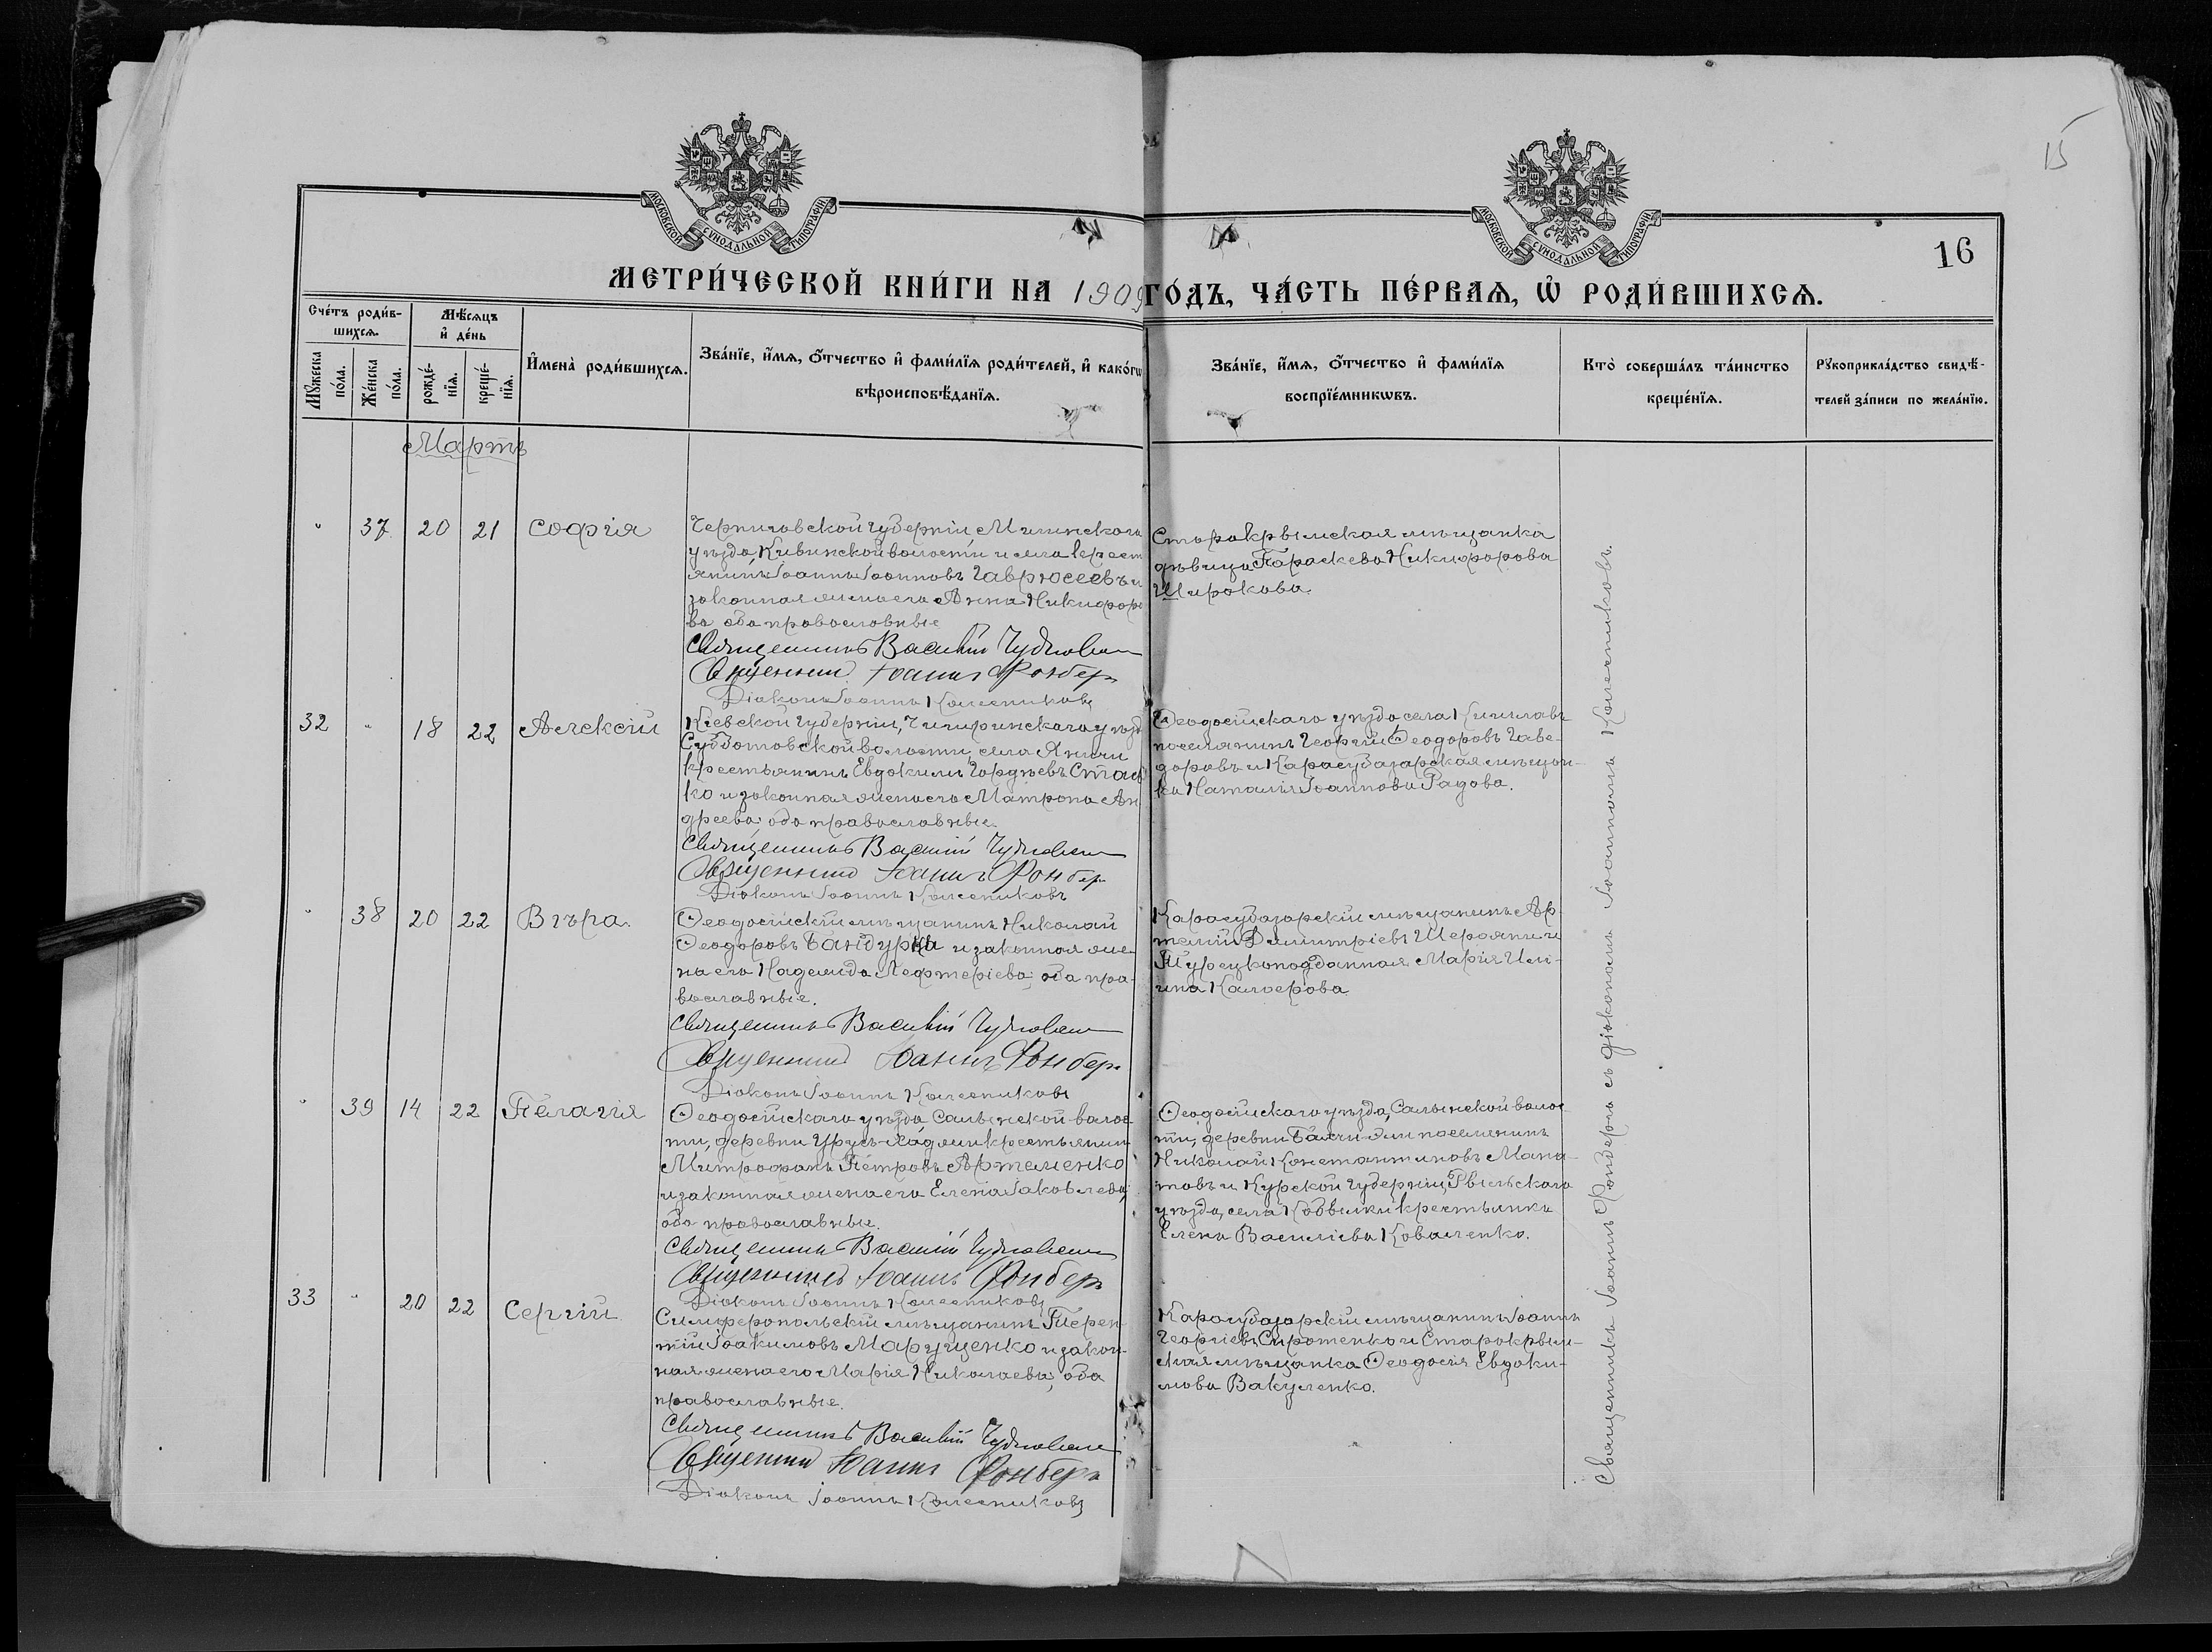 15
16
МОСКОВСКОЙ СѴНОДАЛЬНОЙ ТИПОГРАФІИ
МОСКОВСКОЙ СѴНОДАЛЬНОЙ ТИПОГРАФІИ
МЕТРИ́ЧЕСКОЙ КНИ́ГИ НА 1909 ГО́ДЪ, ЧА́СТЬ ПЕ́РВАѦ, Ѽ РОДИ́ВШИХСѦ.
Сче́тъ роди́в-
шихсѧ.
Мꙋ́жеска
по́ла.
Же́нска
по́ла.
Мѣ́сѧцъ
и҆ де́нь
рожде́-
нїѧ.
креще́-
нїѧ.
И҆мена̀ роди́вшихсѧ.
Зва́нїе, и҆́мѧ, ѻ҆́тчество и҆ фами́лїѧ роди́телей, и҆ како́гѡ
вѣроисповѣ́данїѧ.
Зва́нїе, и҆́мѧ, ѻ҆́тчество и҆ фами́лїѧ
воспрїе́мникѡвъ.
Кто̀ соверша́лъ та́инство
креще́нїѧ.
Рꙋкоприкла́дство свидѣ́-
телей за́писи по жела́нїю.
Мартъ
" 37 20 21 Софія
Черниговской губерніи Мглинскаго
уѣзда, волости и села крест
янинъ Іоаннъ Іоанновъ Гаврюсевъ и
законная жена его Анна Никифоро
ва оба православные
Священникъ Василій
Священникъ Іоаннъ Фондеръ
Діаконъ Іоаннъ Колесниковъ
Старокрымская мѣщанка
дѣвица Параскева Никифорова
Широкова.
32 " 18 22 Алексій
Кіевской губерніи, Чигиринскаго уѣзд
Субботовской волости, села Яничи
крестьянинъ Евдокимъ Гордѣевъ
ко и законная жена его Матрона Ан
дреева оба православные
Священникъ Василій
Священникъ Іоаннъ Фондеръ
Діаконъ Іоаннъ Колесниковъ
Ѳеодосійскаго уѣзда села Кишлавъ
поселянинъ Георгій Ѳеодоровъ
доровъ и Карасубазарская мѣщан-
ка Наталія Іоаннова Радова.
" 38 20 22 Вѣра.
Ѳеодосійскій мѣщанинъ Николай
Ѳеодоровъ Бандурка и законная же-
на его Надежда Лефтеріева; оба пра-
вославные.
Священникъ Василій
Священникъ Іоаннъ Фондеръ
Діаконъ Іоаннъ Колесниковъ
Карасубазарскій мѣщанинъ Ар-
темій Димитріевъ и
Турецкоподданная Марія Иль-
ина Калоерова
" 39 14 22 Пелагія
Ѳеодосійскаго уѣзда, Салынской волос-
ти, деревни Урусъ-Ходжи крестьянинъ
Митрофанъ Петровъ Артеменко
и законная жена его Елена Іаковлева;
оба православные.
Священникъ Василій
Священникъ Іоаннъ Фондеръ
Діаконъ Іоаннъ Колесниковъ
Ѳеодосійскаго уѣзда, Салынской волос-
ти, деревни поселянинъ
Николай Константиновъ Мана-
товъ и Курской губерніи, Рыльскаго
уѣзда, села крестьянка
Елена Василіева Коваленко.
33 " 20 22 Сергій
Симферопольскій мѣщанинъ Терен-
тій Іоакимовъ Марущенко и закон-
ная жена его Марія Николаева; оба
православные.
Священникъ Василій
Священникъ Іоаннъ Фондеръ
Діаконъ Іоаннъ Колесниковъ
Карасубазарскій мѣщанинъ Іоаннъ
Георгіевъ Сиротенко и Старокрым-
ская мѣщанка Ѳеодосія Евдоки-
мова Вакуленко.
Священникъ Іоаннъ Фондеръ съ діакономъ Іоанномъ Колесниковъ.